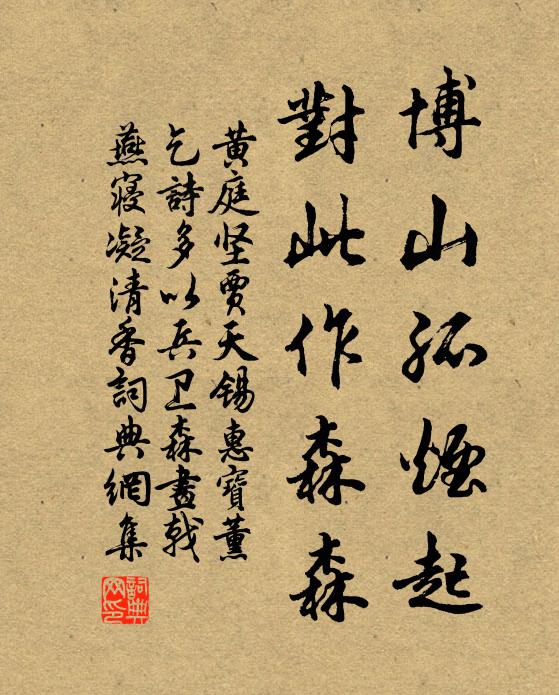 博山孤煙起
對此作森森
黄庭坚賈天錫惠寶薰
乞詩多以兵卫森畫戟
燕寢凝清香詞典網集
詞典網印